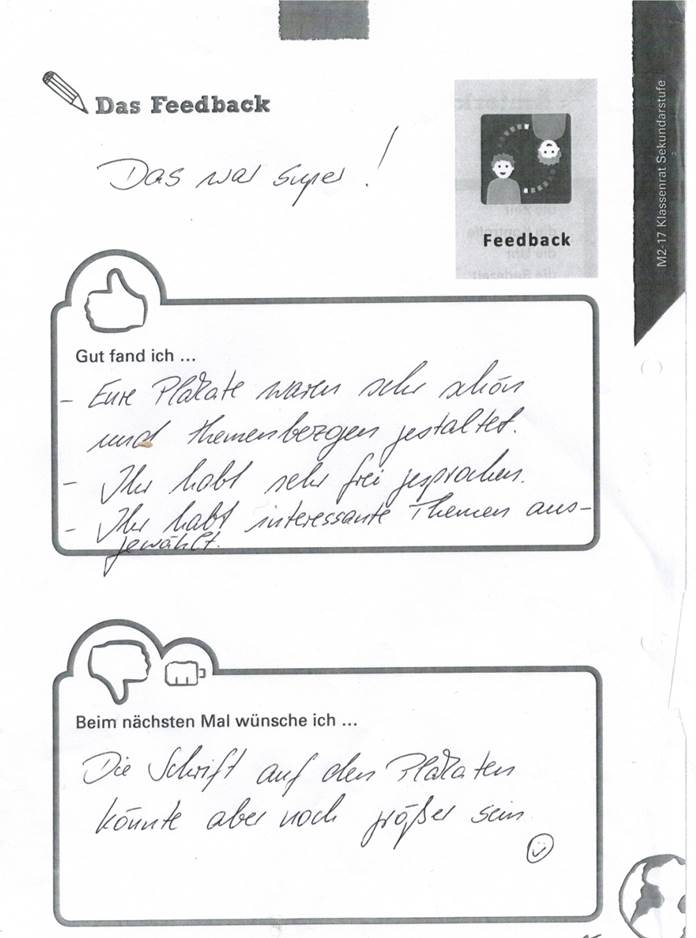 Das Feedback
Das war super!
Feedback
M2-17 Klassenrat Sekundarstufe
Gut fand ich ...
- Eure Plakate waren sehr schön
und themenbezogen gestaltet.
- Ihr habt sehr frei gesprochen.
- Ihr habt interessante Themen aus-
gewählt.
Beim nächsten Mal wünsche ich ...
Die Schrift auf den Plakaten
könnte aber noch größer sein